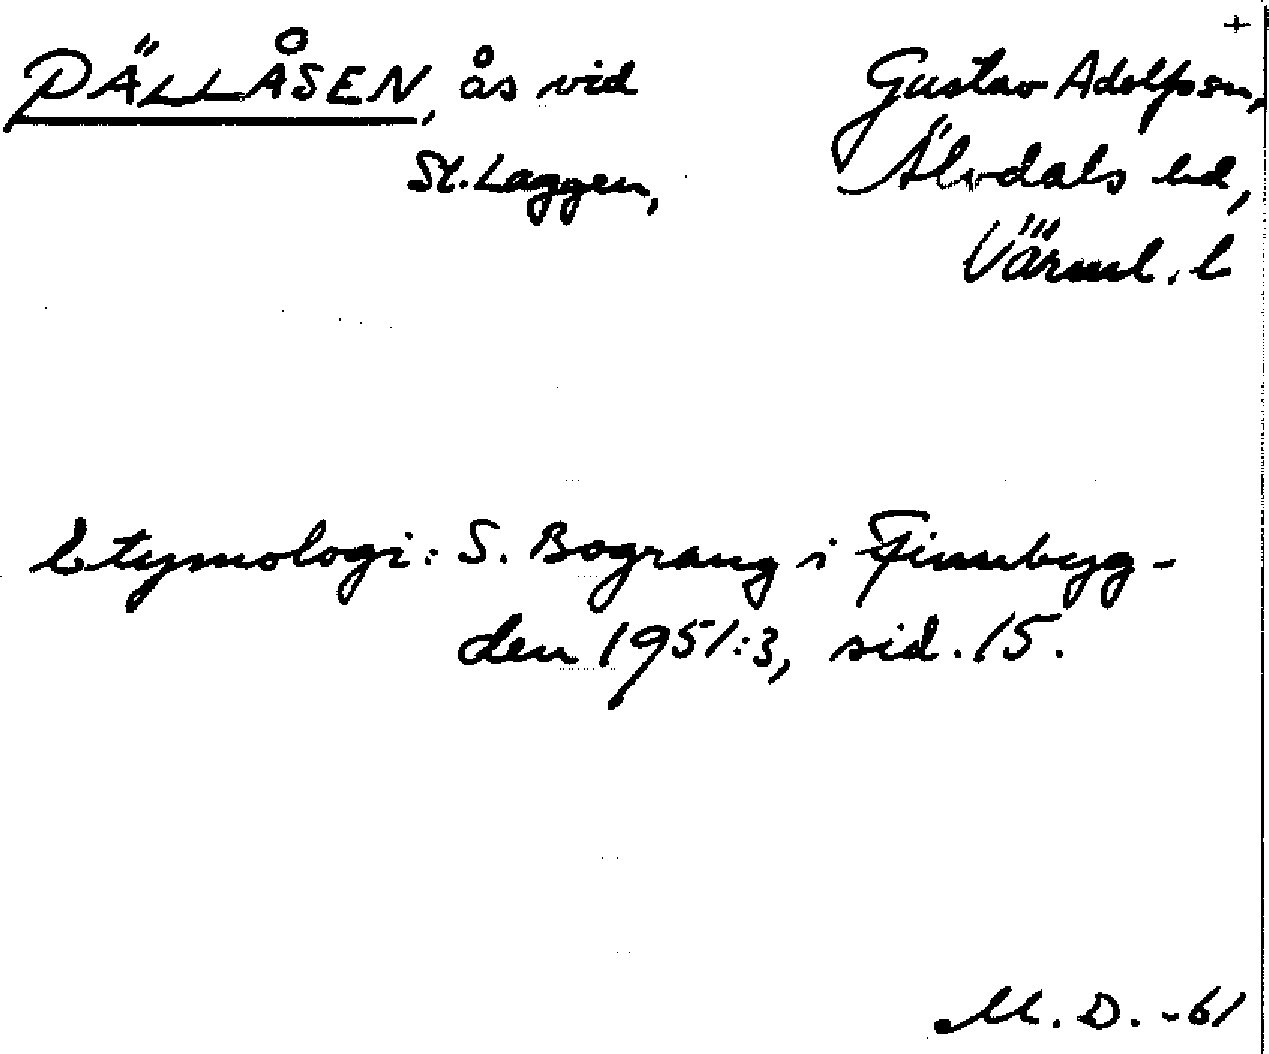 +
PÄLLÅSEN, ås vid
St. Laggen,
Gustav Adolfs sn,
Älvdals hd,
Värml. l
Etymologi: S. Bograng i Finnbyg-
den 1951:3, sid. 15.
M. D. -61